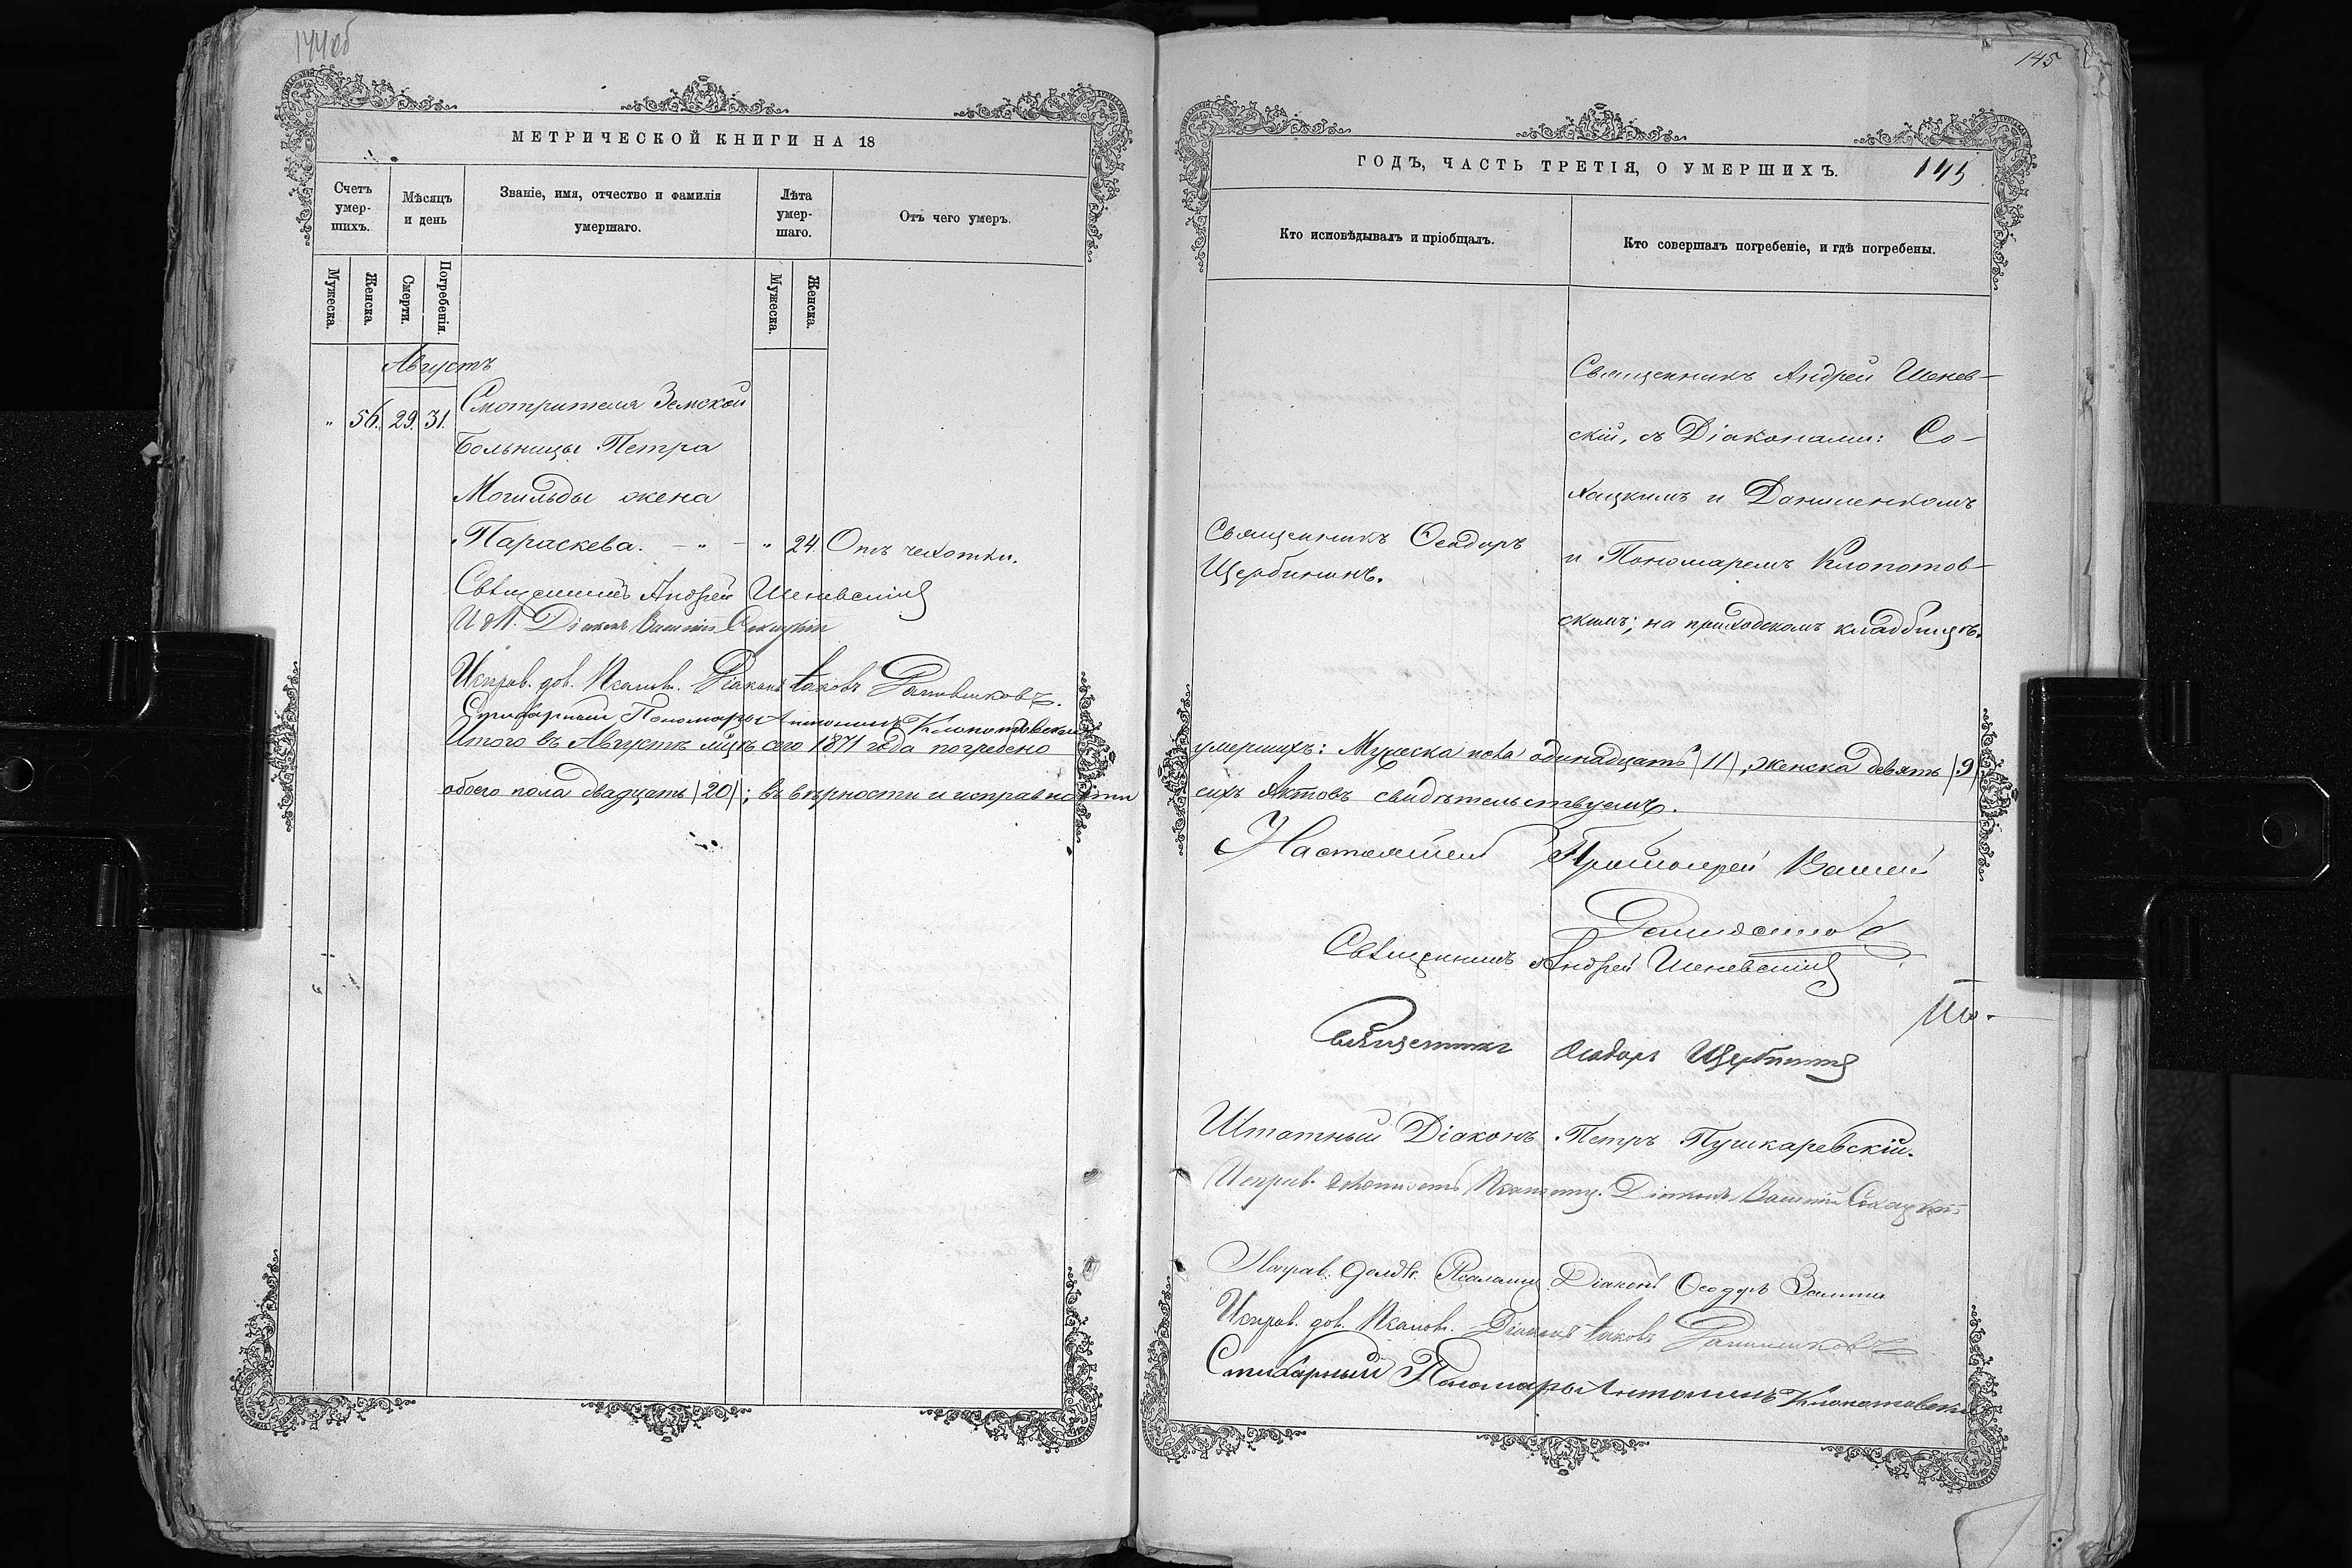 144об
МЕТРИЧЕСКОЙ КНИГИ НА 18
Счетъ умер-шихъ.
Мѣсяцъ и день
Званіе, имя, отчество и фамилія умершаго.
Лѣта умер-шаго.
Отъ чего умеръ.
Мужеска.
Женска.
Смерти.
Погребенія.
Мужеска.
Женска.
Августъ
„ 56. 29. 31. Смотрителя Земской
Больницы Петра
Могильды жена
Параскева. — „ — „ 24. Отъ чехотки.
Священникъ Андрей Шеневскій
Діаконъ Василій Сохацкій
Исправ. дол. Псалом. Діаконъ Іаковъ
Стихарный Пономарь Антонинъ Клопотовскій
Итого въ Августѣ м̃цѣ сего 1871 года погребено
обоего пола двадцать (20); въ вѣрности и исправности
145
ГОДЪ, ЧАСТЬ ТРЕТІЯ, О УМЕРШИХЪ.
145
Кто исповѣдывалъ и пріобщалъ.
Кто совершалъ погребеніе, и гдѣ погребены.
Священникъ Ѳеодоръ
Щербининъ.
Священникъ Андрей Шенев-
скій, съ Діаконами: Со-
хацкимъ и Даниленкомъ
и Пономаремъ Клопотов-
скимъ; на приходскомъ кладбищѣ.
умершихъ: Мужеска пола одинадцать (11), женска девять (9)
сихъ Актовъ свидѣтельствуемъ.
Настоятель Протоіерей Василій
Священникъ Андрей Шеневскій
Священникъ Ѳеодоръ Щербининъ
Штатный Діаконъ Петръ Пушкаревскій.
Исправ. должность Псаломщ. Діаконъ Василій Сохацкій
Исправ. должн. Псаломщ. Діаконъ Ѳеодоръ
Исправ. дол. Псалом. Діаконъ Іаковъ
Стихарный Пономарь Антонинъ Клопотовскій